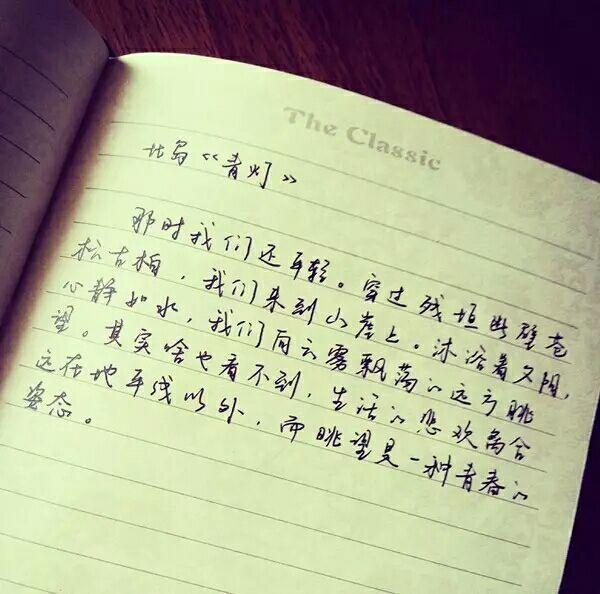 The Classic
北岛《青灯》
那时我们还年轻。穿过残垣断壁苍
松古柏，我们来到山崖上。沐浴着夕阳，
心静如水，我们向云雾飘荡的远方眺
望。其实啥也看不到，生活的悲欢离合
远在地平线以外，而眺望是一种青春的
姿态。